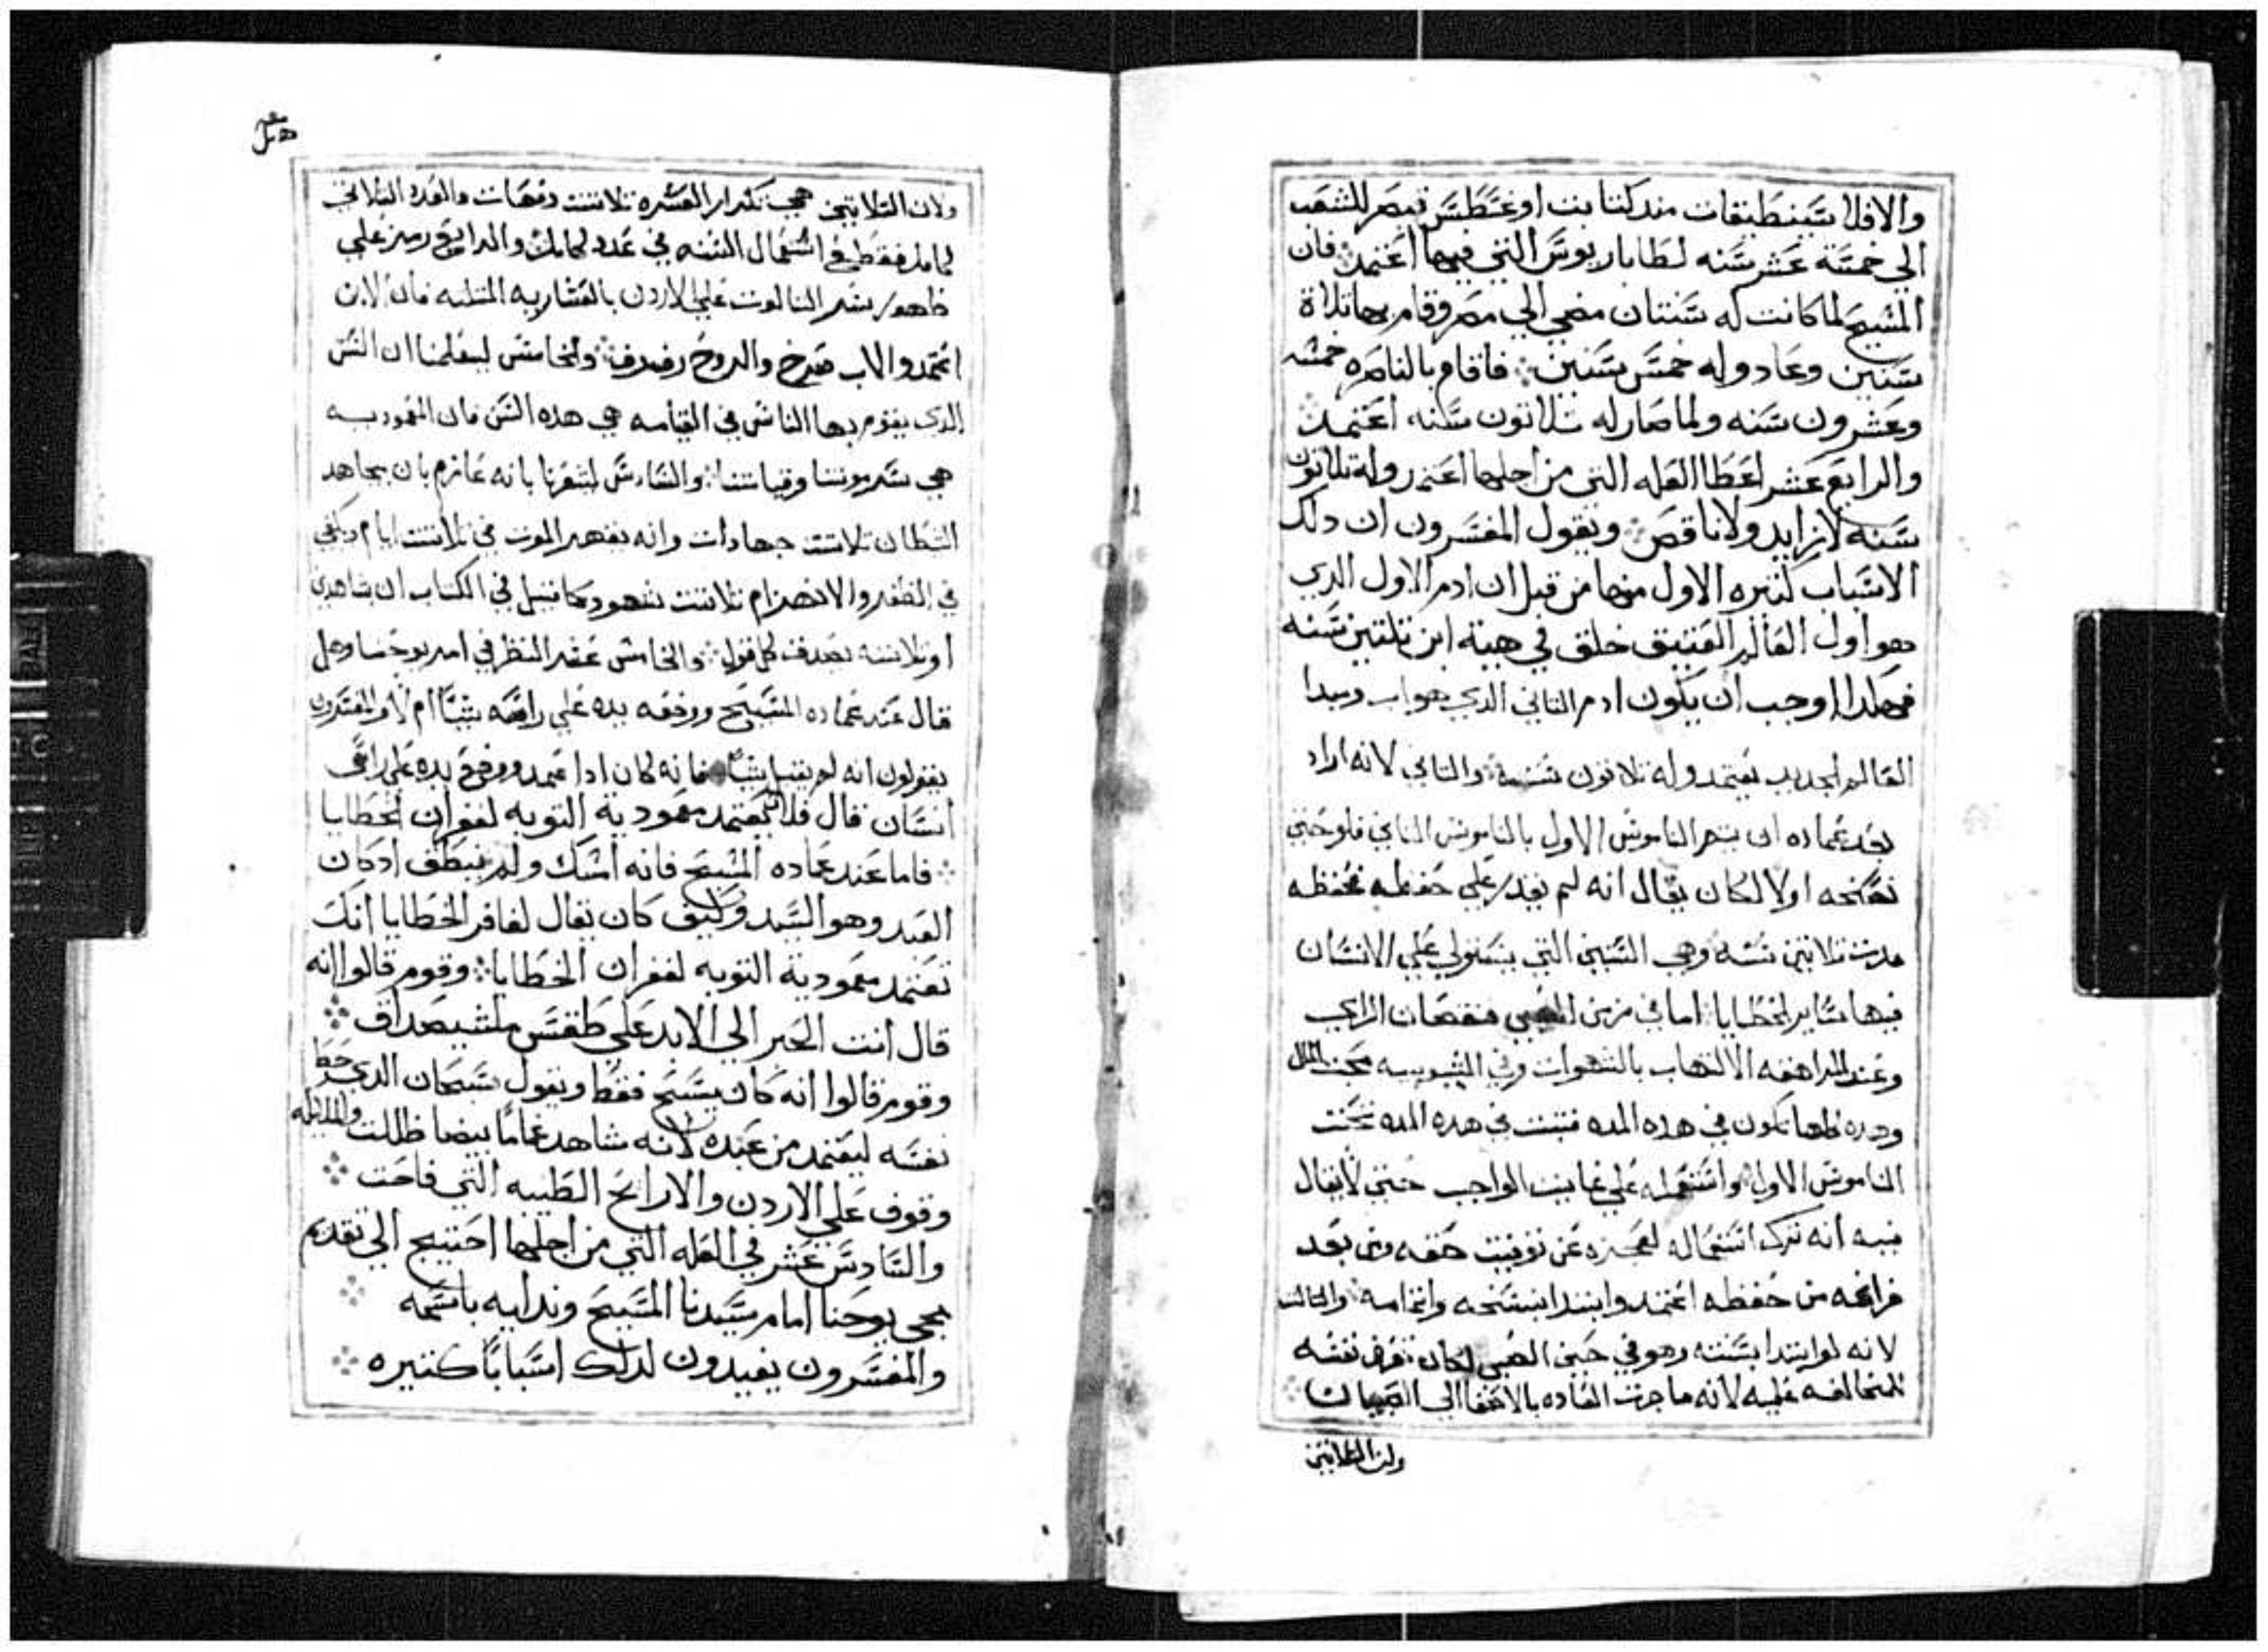 والافلا ستينطبقات مند كتابت اوغسطس قيصر للشعب
الي خمسة عشر سنه لطاباريوس التي فيها اعتمد فان
المسيح لما كانت له سنتان مضي الي مصر وقام بها تلاتة
سنين وعاد وله خمس سنين فاقام بالناصره خمسه
وعشرون سنه ولما صار له تلاتون سنه اعتمد
والرابع عشر اعطا العله التي من اجلها اعتمد وله تلاتون
سنه لا زايد ولا ناقص ويقول المفسرون ان دلك
الاسباب كتيره الاول منها من قبل ان ادم الاول الدي
هو اول العالم العتيق خلق في هية ابن تلتين سنه
فهكدا اوجب ان يكون ادم التاني الدي هو اب ومبدا
العالم الجديد يعتمد وله تلاتون سنه والتاني لانه اراد
بعد عماده ان يتم الناموس الاول بالناموس التاني فلو حتي
نسخه اولا لكان يقال انه لم يقدر علي حفظه فحفظه
مدت تلاتين سنه وهي السنين التي يستولي علي الانسان
فيها ساير الخطايا اما في زمن الصبي فنقصان الراي
وعند المراهقه الالتهاب بالشهوات وفي الشبوبيه محبت المال
وهده كلها تكون في هده المده فتبت في هده المده تحت
الناموس الاول واستعمله علي غايت الواجب حتي لا يقال
فيه انه ترك استعماله لعجزه عن توفيت حقه ومن بعد
فراغه من حفظه اعتمد وابتدا بنسخه واتمامه والتالت
لانه لو ابتدا بسننه وهو في حين الصبي لكان عرض نفسه
للمخالفه عليه لانه ما جرت العاده بالاصغا الي الصبيان
ولان التلاتين
ولان التلاتين هي تكرار العشره تلاتت دفعات والعدد التلاتي
كامل فقطع استعمال السنه في عدد كامل والرابع رمز علي
ظهور سر التالوت علي الاردن بالعشاريه المتلته فان الابن
اعتمد والاب صرخ والروح رفرف والخامس ليعلمنا ان السن
الدي يقوم بها الناس في القيامه هي هده السن فان المعموديه
هي سر موتنا وقيامتنا والسادس ليعرفنا بانه عازم بان يجاهد
الشطان تلاتت جهادات وانه يقهر الموت في تلاتت ايام ويكفي
في الظفر والانهزام تلاتت شهود كما قيل في الكتاب ان بشاهدين
او تلاتته تصدق كل قول والخامس عشر النظر في امر يوحنا وهل
قال عند عماده المسيح ووضعه يده علي راسه شيا ام لا والمفسرون
يقولون انه لم يقل شيا فانه كان ادا عمد ووضع يده علي راس
انسان قال فلان يعتمد معمودية التوبه لغفران الخطايا
فاما عند عماده المسيح فانه امسك ولم ينطق اد كان
العبد وهو السيد وكيف كان يقال لغافر الخطايا انك
تعتمد معمودية التوبه لغفران الخطايا وقوم قالوا انه
قال انت الحبر الي الابد علي طقس ملشيصداق
وقوم قالوا انه كان يسبح فقط ويقول سبحان الدي حط
نفسه ليعتمد من عبده لانه شاهد غماما بيضا ظللت والملايكه
وقوف علي الاردن والارايح الطيبه التي فاحت
والسادس عشر في العله التي من اجلها احتيج الي تقديم
مجي يوحنا امام سيدنا المسيح وندايه باسمه
والمفسرون يفيدون لدلك اسبابا كتيره